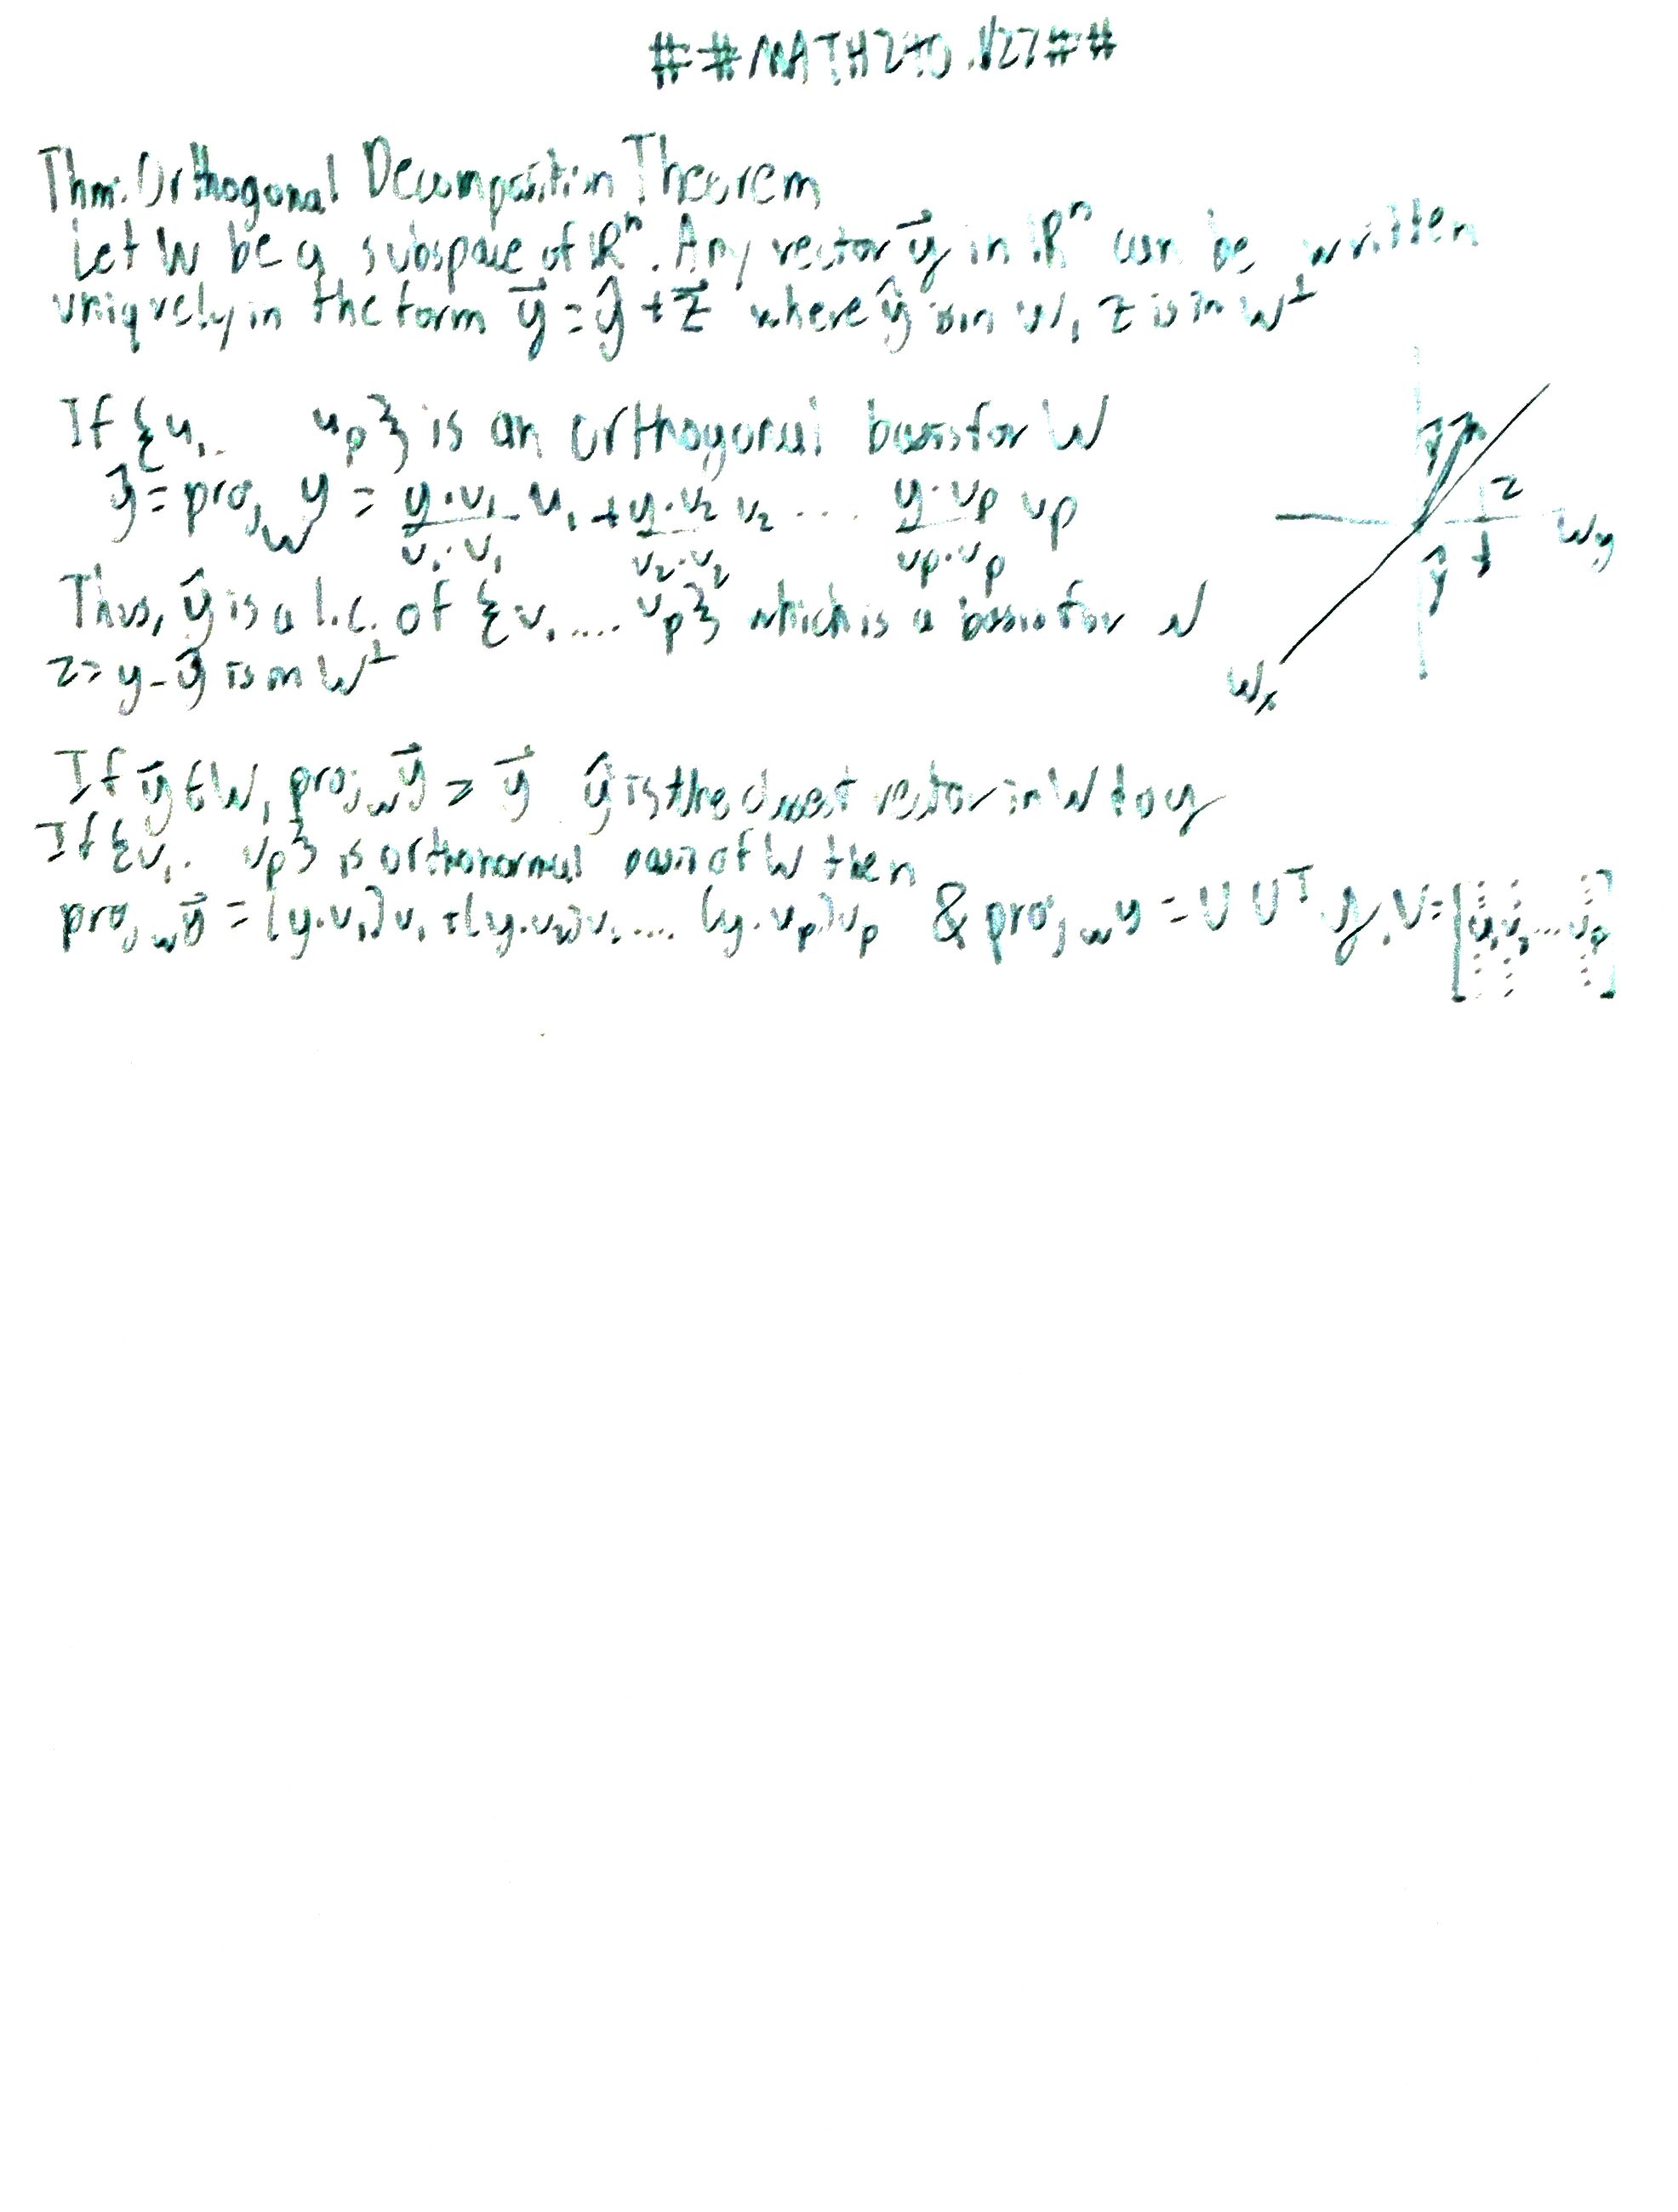 ##MATH240.1/27##
Thm: Orthogonal Decomposition Theorem
Let W be a subspace of ℝⁿ. Any vector y⃗ in ℝⁿ can be written
uniquely in the form y⃗ = ŷ + z⃗ where ŷ is in W, z is in W⊥
If {u₁.. uₚ} is an orthogonal basis for W
ŷ = proj_W y = (y·u₁)/(u₁·u₁) u₁ + (y·u₂)/(u₂·u₂) u₂ .... (y·uₚ)/(uₚ·uₚ) uₚ
Thus, ŷ is a l.c. of {u₁.... uₚ} which is a basis for W
z = y - ŷ is in W⊥
z
W_y
ŷ
Wₓ
If y⃗ ∈ W, proj_W y⃗ = y⃗ ŷ is the closest vector in W to y
If {u₁.. uₚ} is orthonormal basis of W then
proj_W y⃗ = (y·u₁)u₁ + (y·u₂)u₂.... (y·uₚ)uₚ & proj_W y = U Uᵀ y, U = [u₁ u₂ ... uₚ]